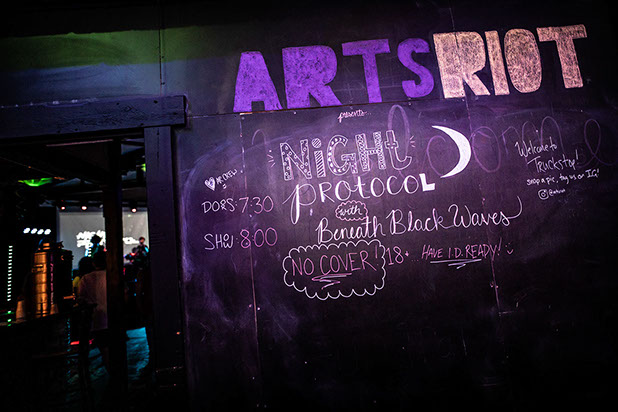 ARTSRIOT
presents
NiGHt
PROTOCOL
with
Beneath Black Waves
NO COVER! 18+ HAVE I.D. READY!
DORS: 7:30
SHW: 8:00
Welcome to
TRUCKSTOP!
SNAP A PIC, TAG US ON IG!